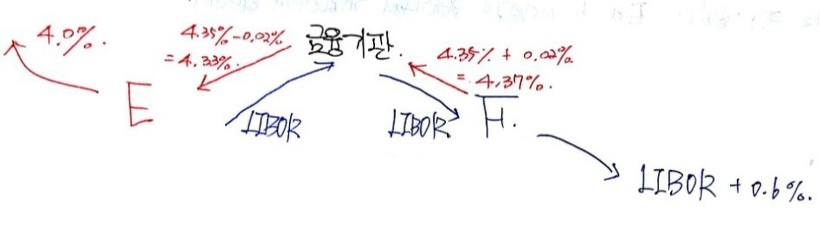 4.0%.
4.35%-0.02%
= 4.33%.
금융기관.
4.35% + 0.02%
= 4.37%.
E
LIBOR
LIBOR
F.
LIBOR + 0.6%.